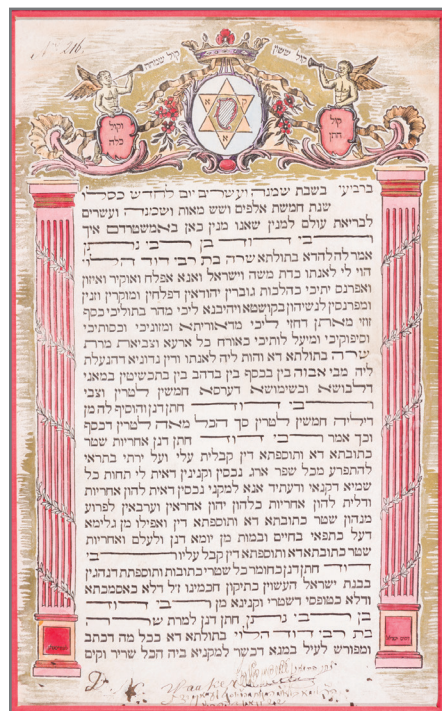 No 216.
קול שמחה
קול ששון
וקול
כלה
קול
חתן
ברביעי בשבת שמנה ועשרים יום לחדש כסליו
שנת חמשת אלפים ושש מאות ושבעה ועשרים
לבריאת עולם למנין שאנו מנין כאן באמשטרדם איך
רבי דוד בן רבי נתן
אמר לה להדא בתולתא שרה בת רבי דוד הלוי
הוי לי לאנתו כדת משה וישראל ואנא אפלח ואוקיר ואיזון
ואפרנס יתיכי כהלכות גוברין יהודאין דפלחין ומוקרין וזנין
ומפרנסין לנשיהון בקושטא ויהיבנא ליכי מהר בתוליכי כסף
זוזי מאתן דחזי ליכי מדאוריתא ומזוניכי וכסותיכי
וסיפוקיכי ומיעל לותיכי כאורח כל ארעא וצביאת מרת
שרה בתולתא דא והות ליה לאנתו ודין נדוניא דהנעלת
ליה מבי אבוה בין בכסף בין בדהב בין בתכשיטין במאני
דלבושא ובשימושא דערסא חמשין לטרין וצבי
רבי דוד חתן דנן והוסיף לה מן
דיליה חמשין לטרין סך הכל מאה לטרין דכסף
וכך אמר רבי דוד חתן דנן אחריות שטר
כתובתא דא ותוספתא דין קבלית עלי ועל ירתי בתראי
להתפרע מכל שפר ארג נכסין וקנינין דאית לי תחות כל
שמיא דקנאי ודעתיד אנא למקני נכסין דאית להון אחריות
ודלית להון אחריות כלהון יהון אחראין וערבאין לפרוע
מנהון שטר כתובתא דא ותוספתא דין ואפילו מן גלימא
דעל כתפאי בחיים ובמות מן יומא דנן ולעלם ואחריות
שטר כתובתא דא ותוספתא דין קבל עליו רבי
דוד חתן דנן כחומר כל שטרי כתובות ותוספתת דנהגין
בבנת ישראל העשוין בתיקון חכמינו ז״ל דלא כאסמכתא
ודלא כטופסי דשטרי וקנינא מן רבי דוד
בן רבי נתן חתן דנן למרת שרה
בת רבי דוד הלוי בתולתא דא בכל מה דכתב
ומפורש לעיל במנא דכשר למקניא ביה הכל שריר וקים